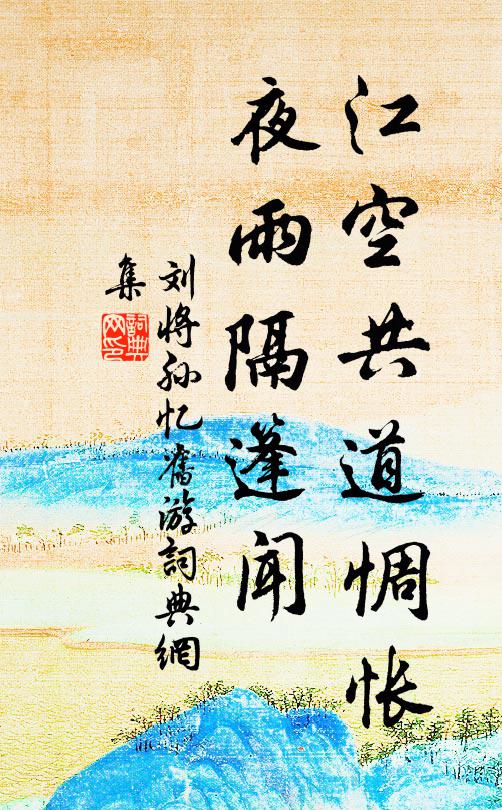 江空共道惆怅
夜雨隔篷闻
刘将孙忆舊游詞典網
集
詞典网印